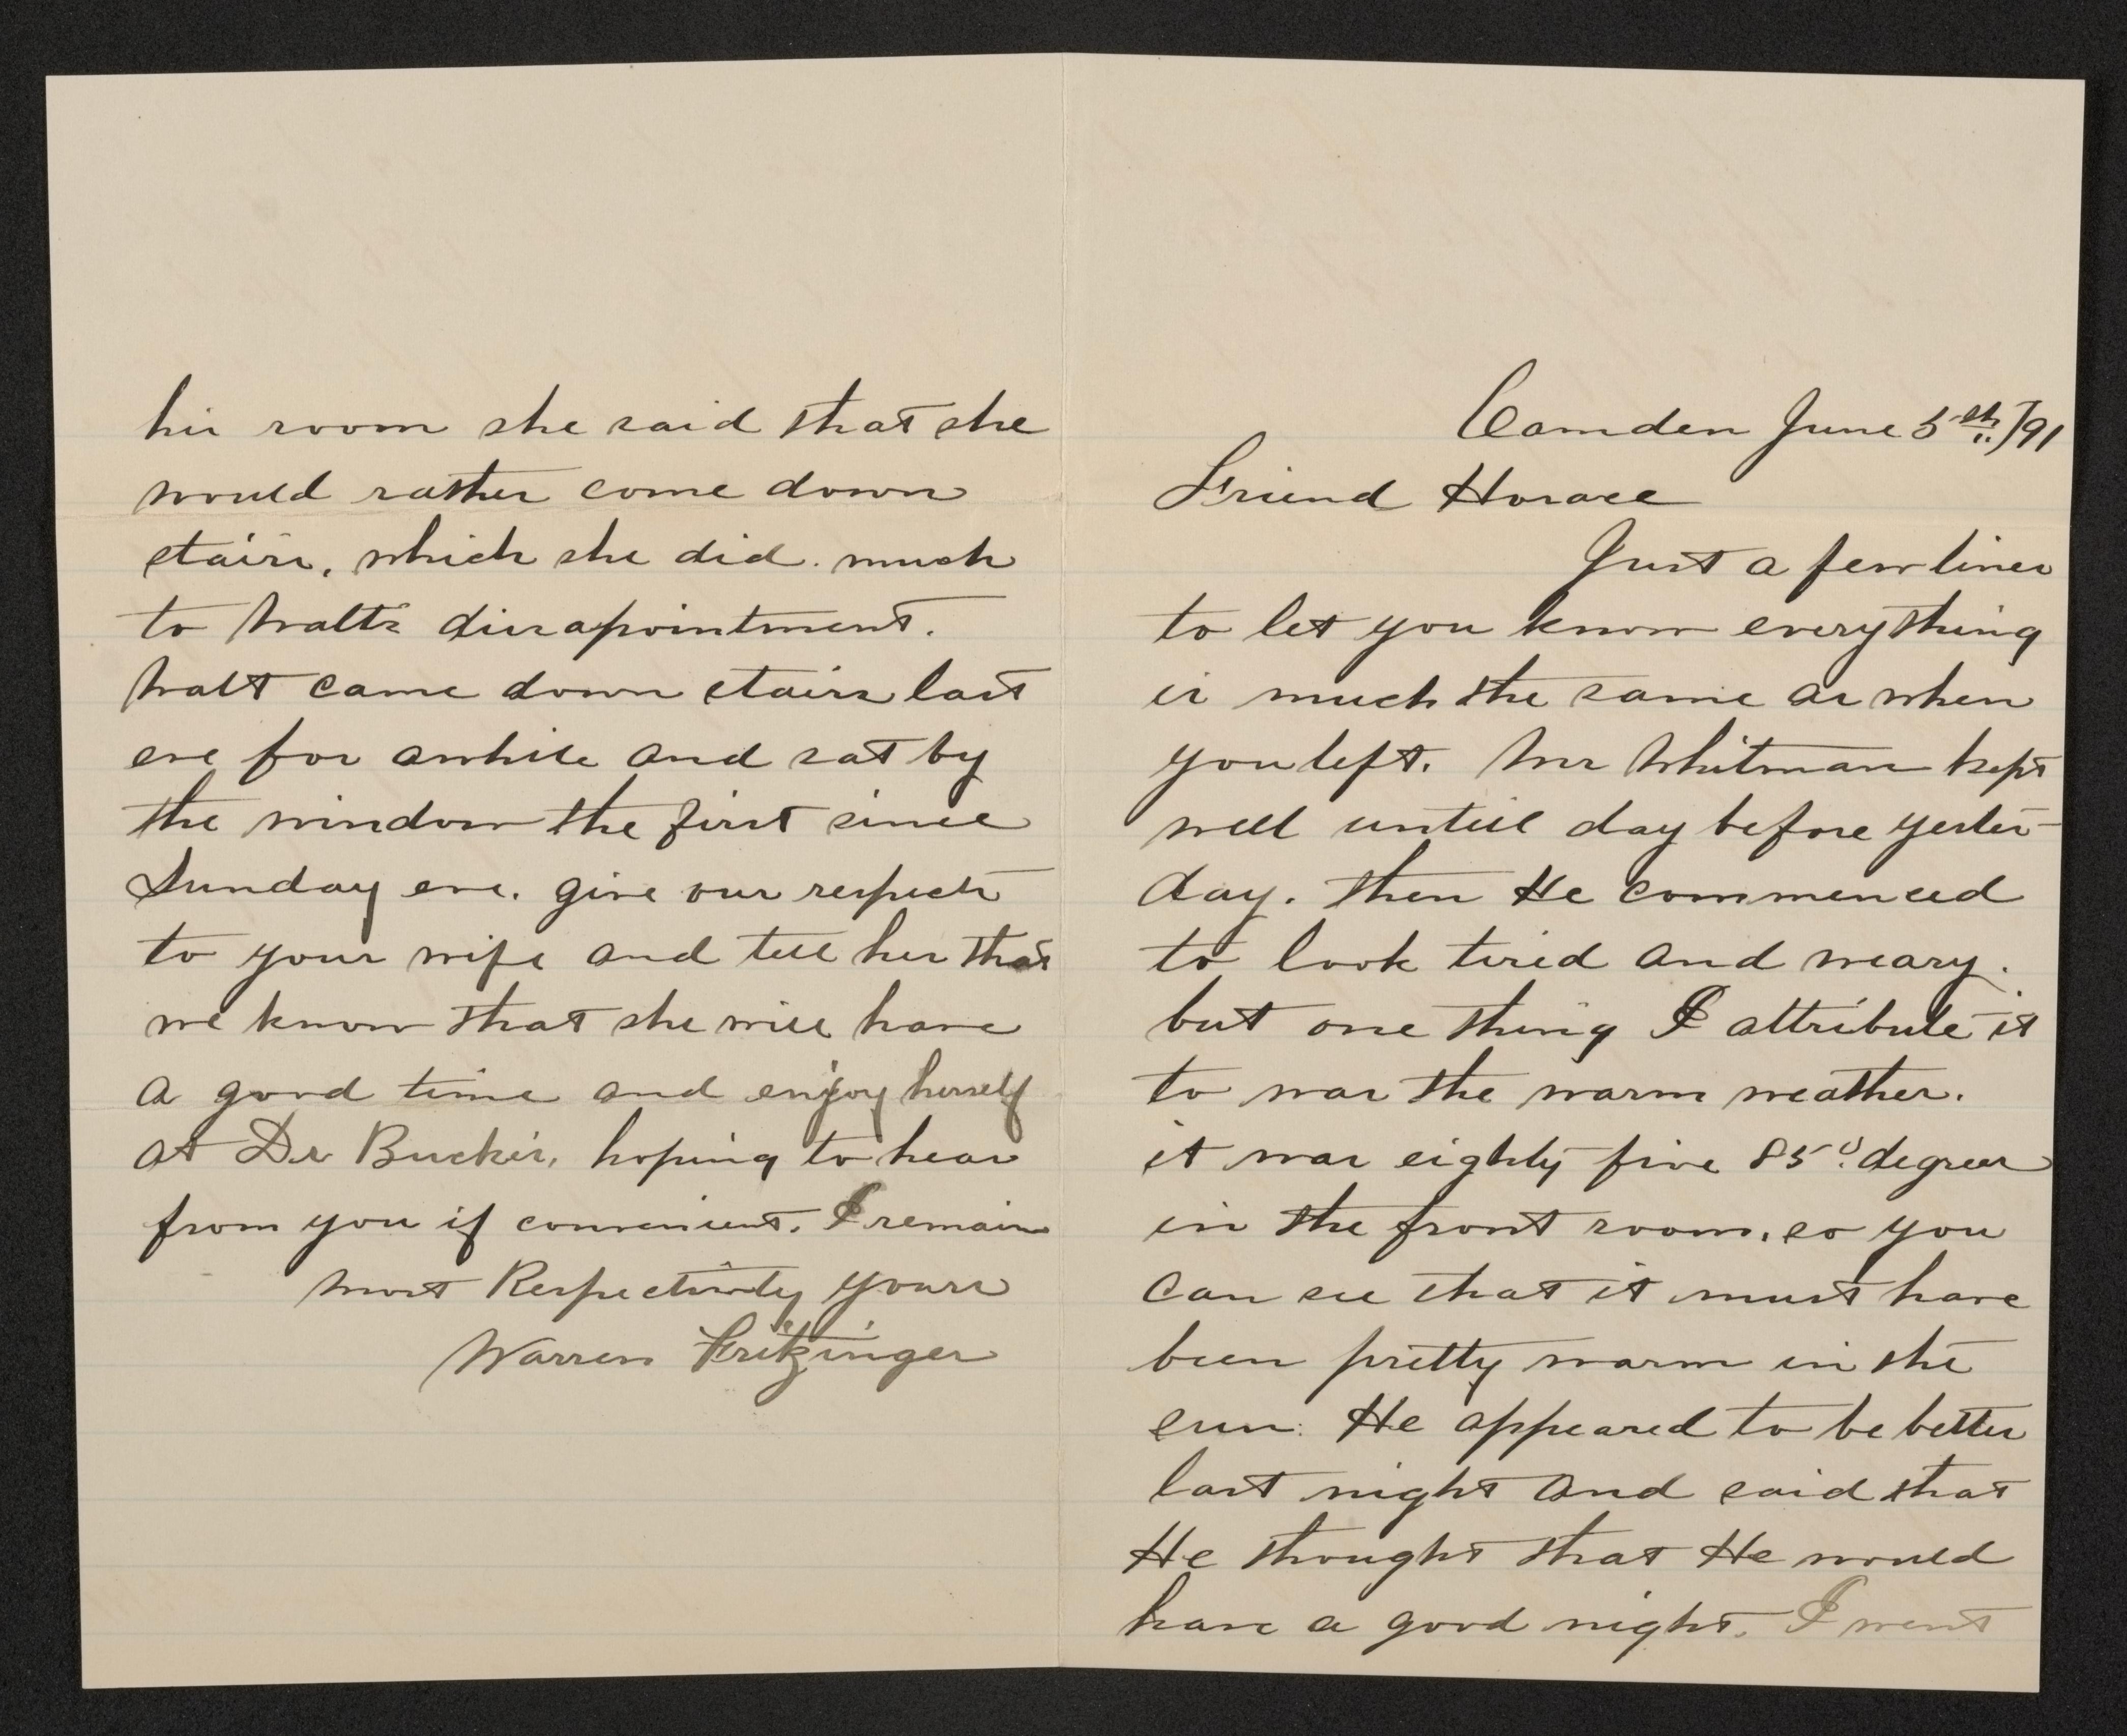 Camden June 5th /91
Friend Horace
Just a few lines
to let you know everything
is much the same as when
you left. Mr Whitman kept
well untill day before yester-
day. then He commenced
to look tired and weary.
but one thing I attribute it
to was the warm weather.
it was eighty five 85° degrees
in the front room, so you
can see that it must have
been pretty warm in the
sun. He appeared to be better
last night and said that
He thought that He would
have a good night. I went
his room she said that she
would rather come down
stairs, which she did. much
to Walts dissapointment.
Walt came down stairs last
eve for awhile and sat by
the window the first since
Sunday eve. give our respects
to your wife and tell her that
we know that she will have
a good time and enjoy herself
at Dr Buckis, hoping to hear
from you if convenient. I remain
most Respectively yours
Warren Fritzinger